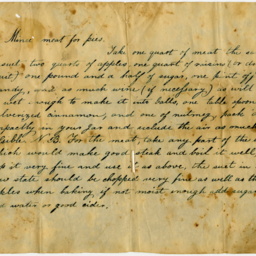 Mince meat for pies.
Take one quart of meat the same
suet, two quarts of apples, one quart of onions (or dried
fruit) one pound and a half of sugar, one pint of
andy, and as much wine (if necessary) as will
wet enough to make it into balls, one table spoon
ulverized cinnamon, and one of nutmeg, pack it
ompactly in your jar and exclude the air as much
sible. N.B. For the meat, take any part of the
hich would make good steak and boil it well
p it very fine and use it as above, the suet in
w state should be chopped very fine as well as the
ples when baking, if not moist enough add sugar
d water or good cider.